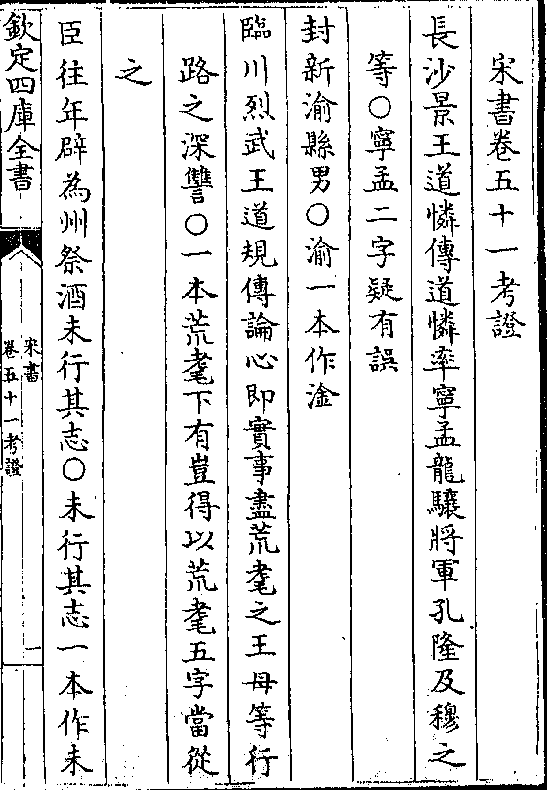 宋書卷五十一考證
長沙景王道憐傳道憐率寧孟龍驤將軍孔隆及穆之
等○寧孟二字疑有誤
封新渝縣男○渝一本作淦
臨川烈武王道規傳論心即實事盡荒耄之王母等行
路之深讐○一本荒耄下有豈得以荒耄五字當從
之
臣往年辟為州祭酒未行其志○未行其志一本作未
欽定四庫全書
宋書
卷五十一考證
一